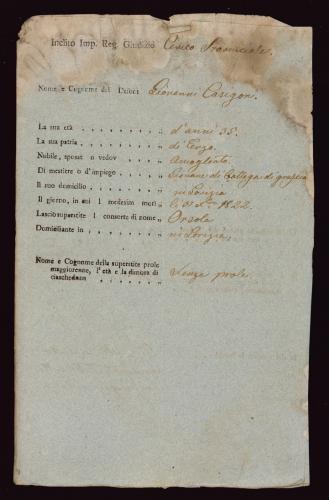 Inclito Imp. Reg. Giudizio Civico Provinciale.
Nome e Cognome del Defont Giovanni
La sua età d'anni 35.
La sua patria di
Nubile, sposat o vedov Amogliato.
Di mestiere o d'impiego Giovane di Bottega di
Il suo domicilio in Gorizia
Il giorno, in cui l medesim morì li 1822.
Lascio superstite l consorte di nome Orsola
Domiciliante in in Gorizia.
Nome e Cognome della superstite prole
maggiorenne, l'età e la dimora di Senza prole.
ciascheduno